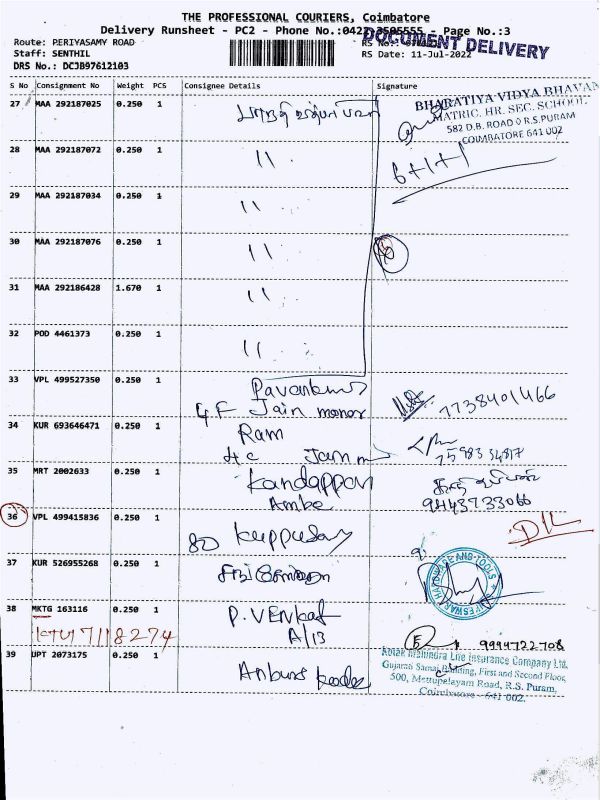 THE PROFESSIONAL COURIERS, Coimbatore
Delivery Runsheet - PC2 - Phone No.:0422 3505555 - Page No.:3
Route: PERIYASAMY ROAD
DOCUMENT DELIVERY
Staff: SENTHIL
RS Date: 11-Jul-2022
DRS No.: DCJB97612103
S No Consignment No Weight PCS Consignee Details Signature
27 MAA 292187025 0.250 1
BHARATIYA VIDYA BHAVAN
MATRIC. HR. SEC. SCHOOL
582 D.B. ROAD R.S.PURAM
COIMBATORE 641 002
28 MAA 292187072 0.250 1 11
6+1+1
29 MAA 292187034 0.250 1 11
30 MAA 292187076 0.250 1 11
31 MAA 292186428 1.670 1 11
32 POD 4461373 0.250 1 11
33 VPL 499527350 0.250 1 Pavankumar
4F Jain manor 7738401466
34 KUR 693646471 0.250 1 Ram
35 MRT 2002633 0.250 1 Kandappan
Ambe 9443733066
36 VPL 499415836 0.250 1
80 Kuppusamy D/L
37 KUR 526955268 0.250 1
HARDWARE AND TOOLS
38 MKTG 163116 0.250 1 P. Venkat
KTU 7118274 A/13
9994722708
39 UPT 2073175 0.250 1
Kotak Mahindra Life Insurance Company Ltd.
Gujarati Samaj Building, First and Second Floor,
500, Mettupalayam Road, R.S. Puram,
Coimbatore - 641 002.